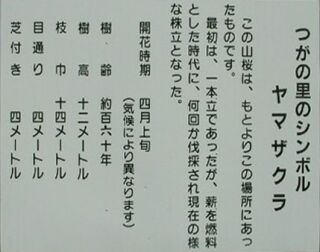 つがの里のシンボル
ヤマザクラ
この山桜は、もとよりこの場所にあっ
たものです。
最初は、一本立であったが、薪を燃料
とした時代に、何回か伐採され現在の様
な株立となった。
開花時期　四月上旬
（気候により異なります）
樹　齢　約百六十年
樹　高　十二メートル
枝　巾　十四メートル
目通り　四メートル
芝付き　四メートル